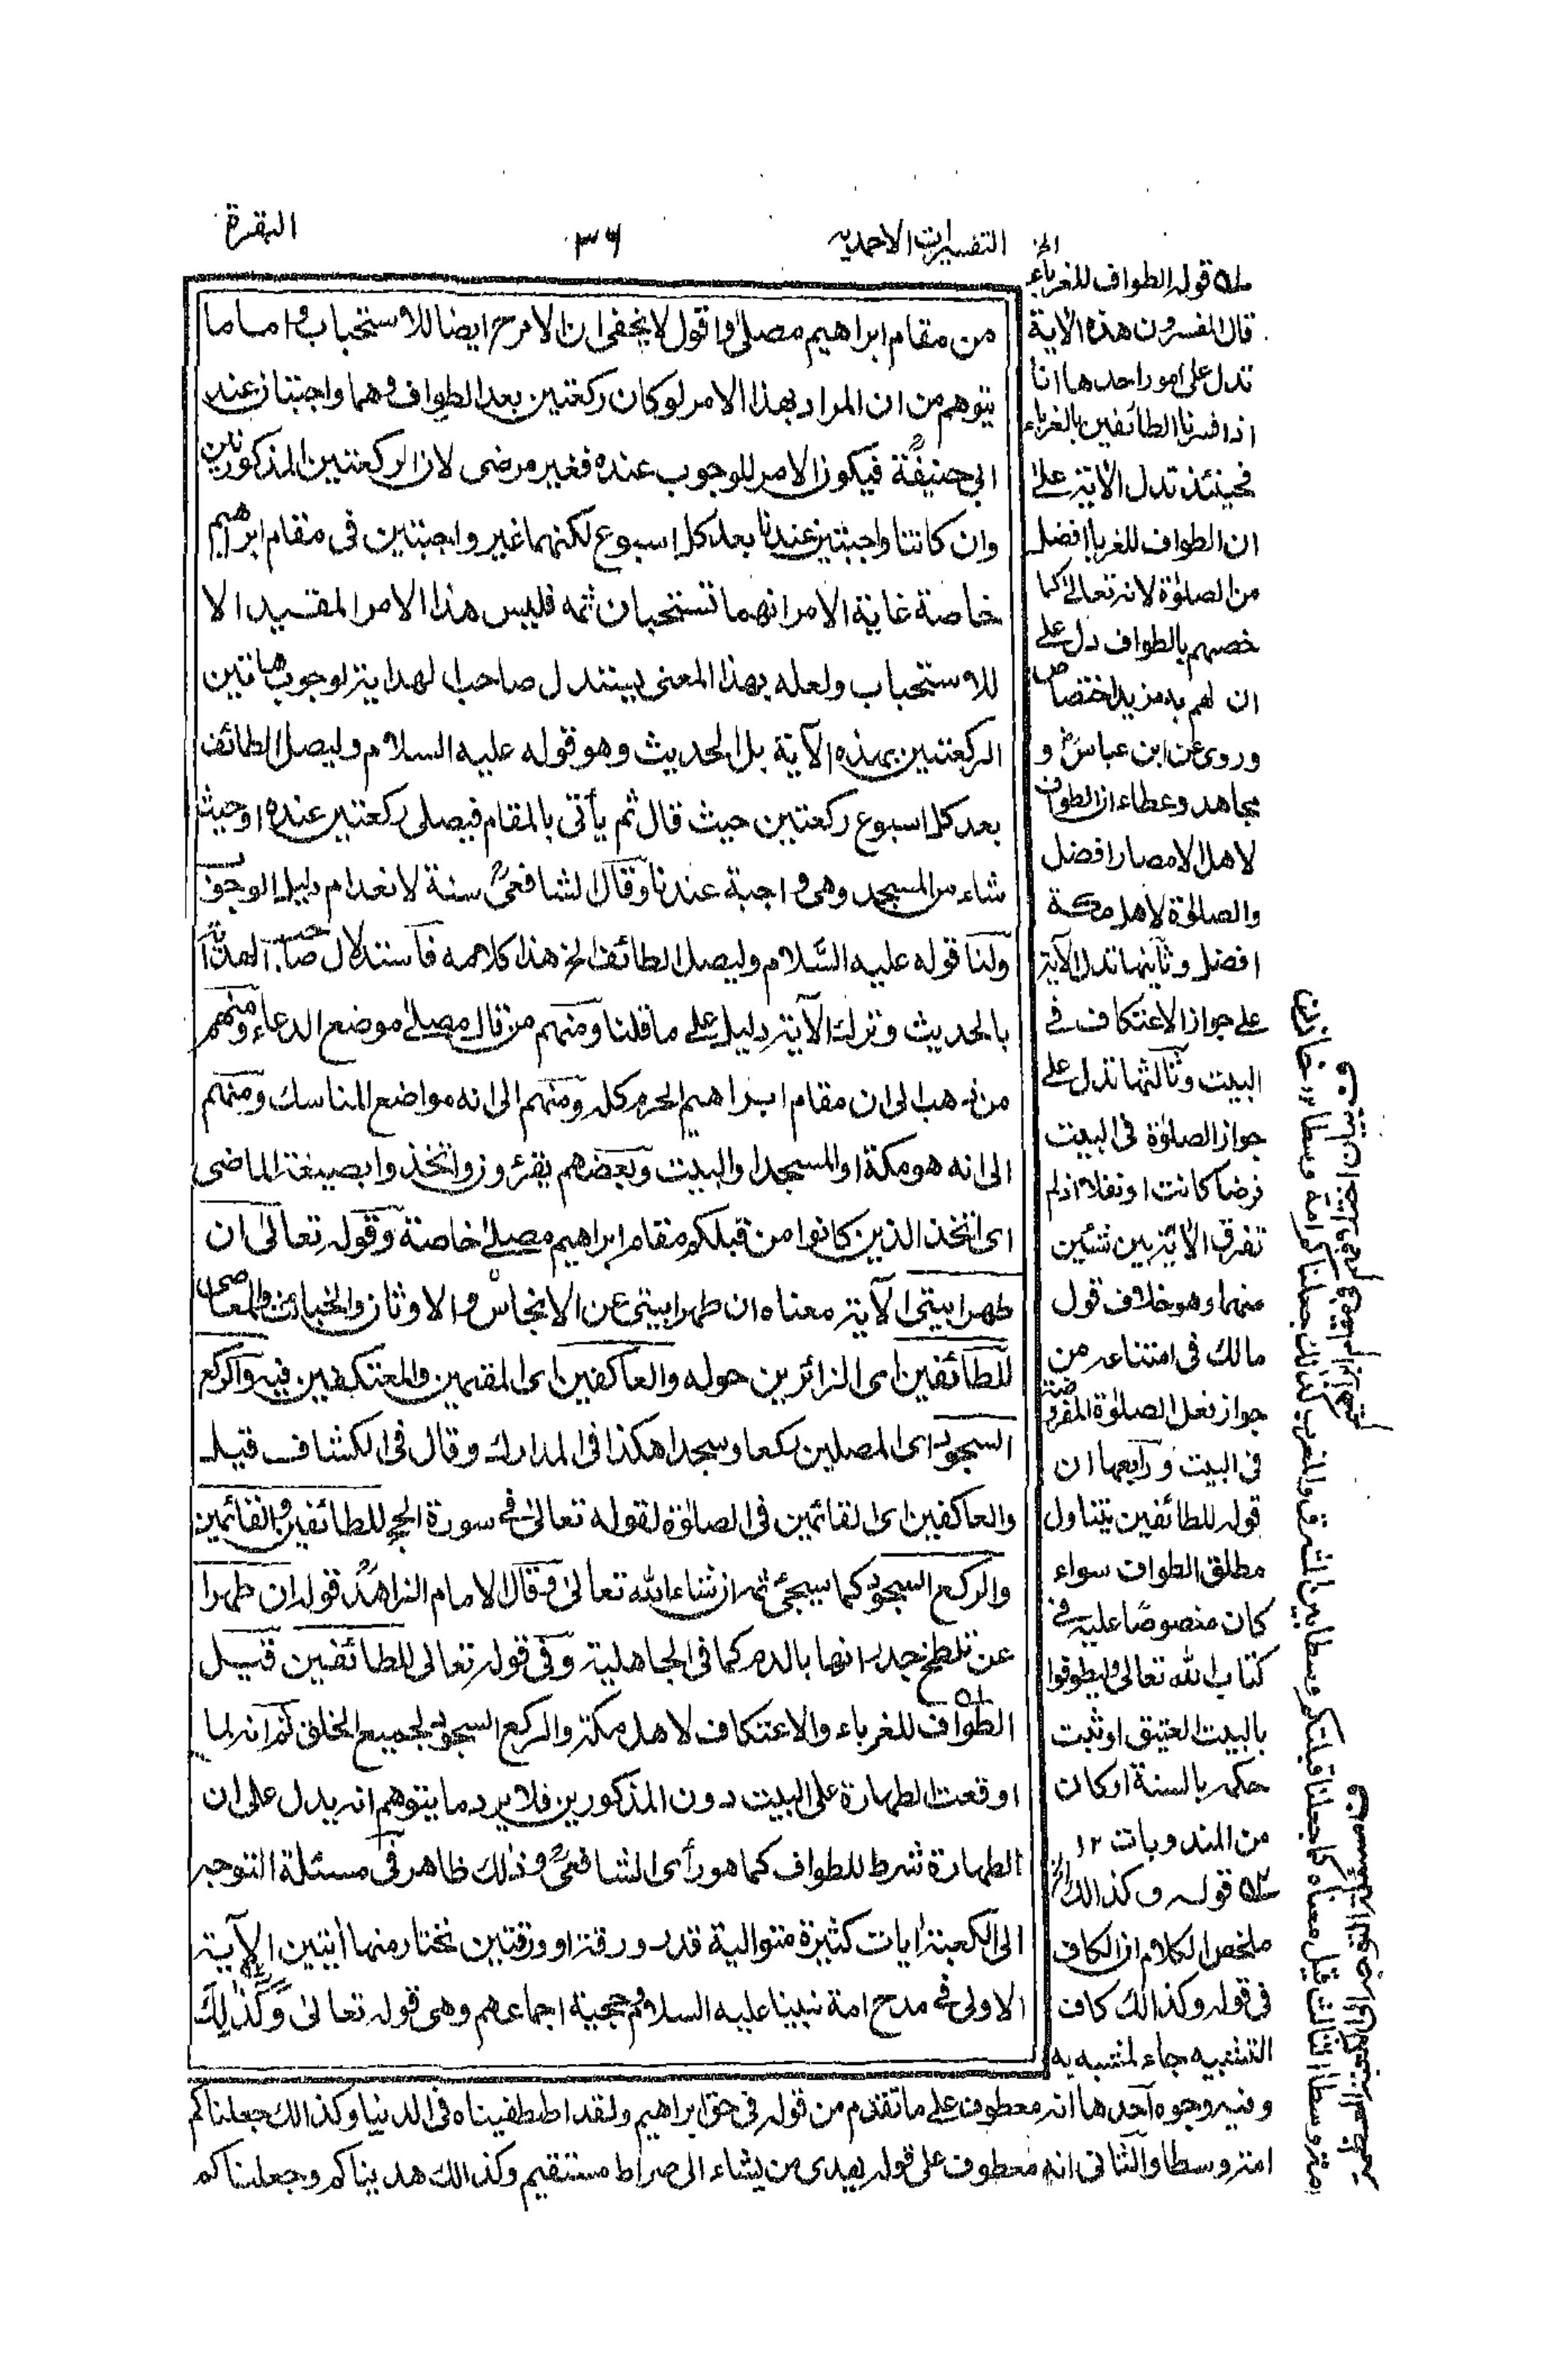 التفسيرات الاحمدية
٣٦
البقرة
من مقام ابراهيم مصلى واقول لا يخفى ان الامر ح ايضا للاستحباب واما ما
يتوهم من ان المراد بهذا الامر لو كان ركعتين بعد الطواف وهما واجبتان عند
ابي حنيفة فيكون الامر للوجوب عنده فغير مرضى لان الركعتين المذكورتين
وان كانتا واجبتين عندنا بعد كل اسبوع لكنهما غير واجبتين فى مقام ابرهيم
خاصة غاية الامر انهما تستحبان ثمه فليس هذا الامر المقتيد الا
للاستحباب ولعله بهذا المعنى يستدل صاحب الهداية لوجوب هاتين
الركعتين بهذه الآية بل الحديث وهو قوله عليه السلام وليصل الطائف
بعد كل اسبوع ركعتين حيث قال ثم يأتى بالمقام فيصلى ركعتين عنده او حيث
شاء من المسجد وهى واجبة عندنا وقال الشافعى سنة لانعدام دليل الوجوب
ولنا قوله عليه السلام وليصل الطائف الخ هذا كلامه فاستدلال صاحب الهداية
بالحديث وترك الآية دليل على ما قلنا ومنهم من قال مصلى موضع الدعاء ومنهم
من ذهب الى ان مقام ابراهيم الحرم كله ومنهم الى انه مواضع المناسك ومنهم
الى انه هو مكة او المسجد او البيت وبعضهم يقرؤن واتخذوا بصيغة الماضى
اى اتخذ الذين كانوا من قبلكم مقام ابراهيم مصلى خاصة وقوله تعالى ان
طهرا بيتى الآية معناه ان طهرا بيتى عن الانجاس والاوثان والخبائث والمعاصى
للطائفين اى الزائرين حوله والعاكفين اى المقيمين والمعتكفين فيه والركع
السجود اى المصلين ركعا وسجدا هكذا فى المدارك وقال فى الكشاف قيل
والعاكفين اى القائمين فى الصلوٰة لقوله تعالى فى سورة الحج للطائفين والقائمين
والركع السجود كما سيجئ ثمه ان شاء الله تعالى وقال الامام الزاهد قوله ان طهرا
عن تلطخ جدرانها بالدم كما فى الجاهلية وفى قوله تعالى للطائفين قيل
الطواف للغرباء والاعتكاف لاهل مكة والركع السجود لجميع الخلق ثم انه لما
اوقعت الطهارة على البيت دون المذكورين فلا يرد ما يتوهم انه يدل على ان
الطهارة شرط للطواف كما هو رأى الشافعى وذلك ظاهر فى مسئلة التوجه
الى الكعبة اٰيات كثيرة متوالية قدر ورقة او ورقتين نختار منها اٰيتين الآية
الاولى فى مدح امة نبينا عليه السلام ثم حجية اجماعهم وهى قوله تعالى وَكَذٰلِكَ
له قوله الطواف للغرباء الخ
قال المفسرون هذه الآية
تدل على امور احدها انا
اذا فسرنا الطائفين بالغرباء
فحينئذ تدل الآية على
ان الطواف للغرباء افضل
من الصلوٰة لانه تعالى كما
خصهم بالطواف دل على
ان لهم به مزيد اختصاص
وروى عن ابن عباس و
مجاهد وعطاء ان الطواف
لاهل الامصار افضل
والصلوٰة لاهل مكة
افضل وثانيها تدل الآية
على جواز الاعتكاف فى
البيت وثالثها تدل على
جواز الصلوٰة فى البيت
فرضا كانت او نفلا اذ لم
تفرق الآية بين شئين
منهما وهو خلاف قول
مالك فى امتناعه من
جواز فعل الصلوٰة المفروضة
فى البيت ورابعها ان
قوله للطائفين يتناول
مطلق الطواف سواء
كان منصوصًا عليه فى
كتاب الله تعالى وليطوفوا
بالبيت العتيق او ثبت
حكمه بالسنة او كان
من المندوبات ١٢
قوله وكذالك الخ
ملخص الكلام ان الكاف
فى قوله وكذالك كاف
التشبيه جاء لمشبه به
وفيه وجوه احدها انه معطوف على ما تقدم من قوله فى حق ابراهيم ولقد اصطفيناه فى الدنيا وكذالك جعلناكم
امة وسطا والثانى انه معطوف على قوله يهدى من يشاء الى صراط مستقيم وكذالك هديناكم وجعلناكم
امة وسطا والثالث قيل معناه كما جعلنا قبلتكم وسطا بين المشرق والمغرب كذالك جعلناكم امة وسطا ١٢ خازن